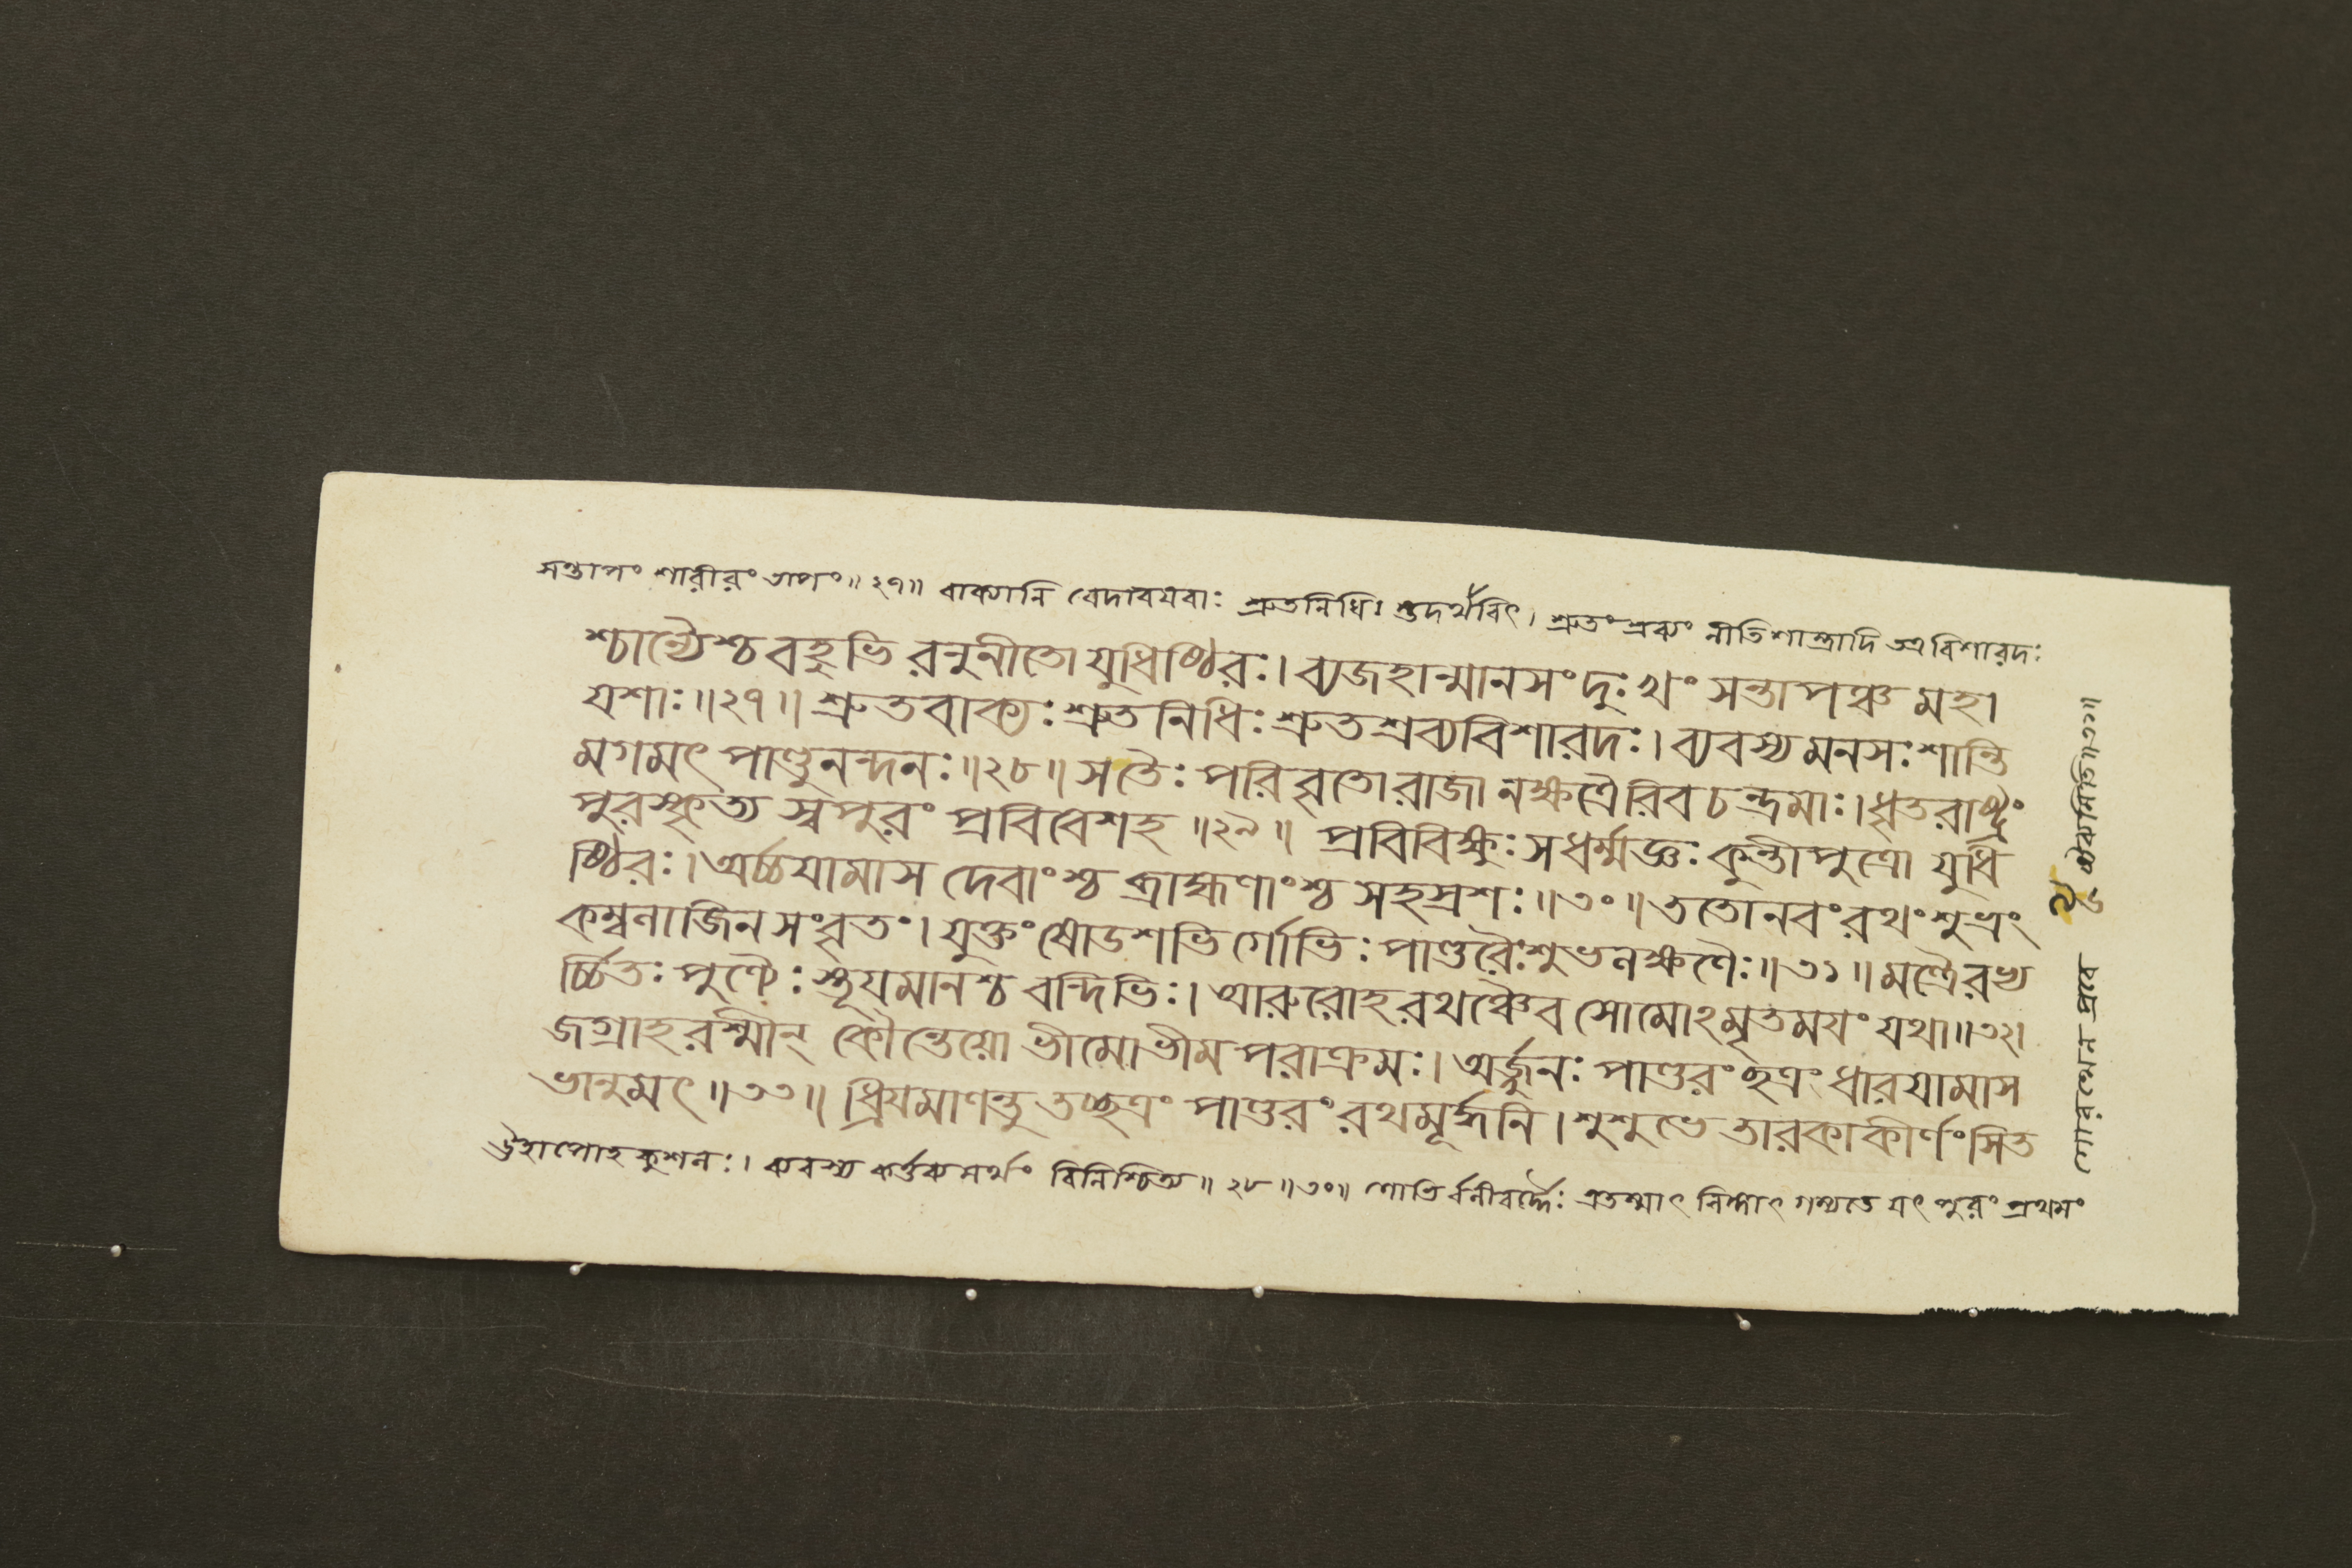 সন্তাপং শারীরং তাপং॥২৭॥ বাক্যানি বেদাবযবাঃ শ্রুতনিধিঃ শ্রুদর্থবিৎ। শ্রুতং শ্রব্যং নীতিশাস্ত্রাদি তত্র বিশারদঃ
শ্চান্যৈশ্চ বহুভি রনুনীতো যুধিষ্ঠিরঃ। ব্যজহান্মানসং দুঃখং সন্তাপঞ্চ মহা
যশাঃ॥২৭॥ শ্রুতবাক্যঃ শ্রুতনিধিঃ শ্রুতশ্রব্যবিশারদঃ। ব্যবস্য মনসঃ শান্তি
মগমৎ পাণ্ডুনন্দনঃ॥২৮॥ সতৈঃ পরিবৃতো রাজা নক্ষত্রৈরিব চন্দ্রমাঃ। ধৃতরাষ্ট্রং
পুরস্কৃত্য স্বপুরং প্রবিবেশহ॥২৯॥ প্রবিবিক্ষুঃ সধর্ম্মজ্ঞঃ কুন্তীপুত্রো যুধি
ষ্ঠিরঃ। অর্চ্চযামাস দেবাংশ্চ ব্রাহ্মণাংশ্চ সহস্রশঃ॥৩০॥ ততোনবং রথং শুভ্রং
কম্বলাজিন সংবৃতং। যুক্তং ষোডশভি র্গোভিঃ পাণ্ডরৈঃ শুভলক্ষণৈঃ॥৩১॥ মন্ত্রৈরভ্য
র্চ্চিতঃ পুণ্যৈঃ স্তূযমানশ্চ বন্দিভিঃ। আরুরোহ রথঞ্চৈব সোমোঽমৃতমযং যথা॥৩২।
জগ্রাহ রশ্মীন্ কৌন্তেয়ো ভীমোভীম পরাক্রমঃ। অর্জ্জুনঃ পাণ্ডরং ছত্রং ধারযামাস
ভানুমৎ॥৩৩॥ ধ্রিযমাণন্তু তচ্ছত্রং পাণ্ডরং রথমূর্দ্ধনি। শুশুভে তারকাকীর্ণং সিত
ঊহাপোহ কুশলঃ। ব্যবস্য কর্ত্তব্যমর্থং বিনিশ্চিত্য॥২৮॥৩০॥ গোভির্বলীবর্দ্দৈঃ এতস্মাৎ লিঙ্গাৎ গম্যতে যৎ পুরং প্রথমং
গোরথেন প্রবে ষ্টব্যমিতি॥৩১॥
৯৬